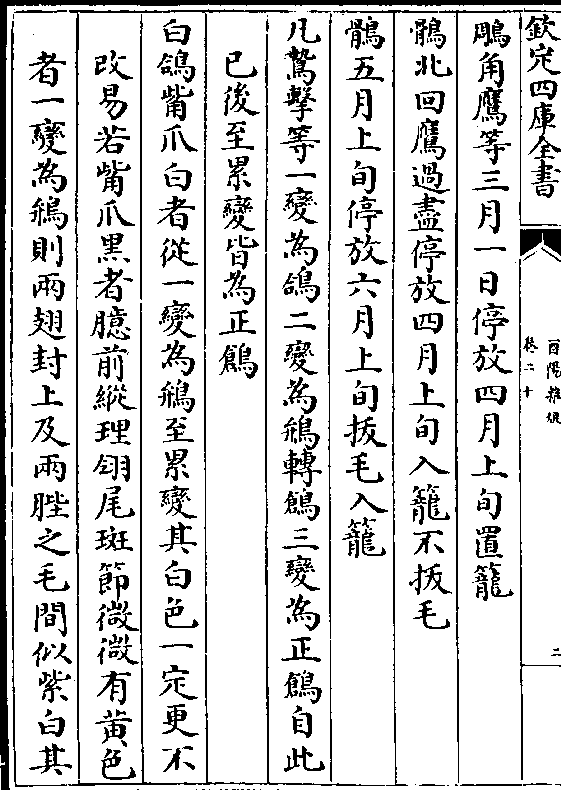 欽定四庫全書
酉陽雜俎
卷二十
二
鵰角鷹等三月一日停放四月上旬置籠
鶻北回鷹過盡停放四月上旬入籠不拔毛
鶻五月上旬停放六月上旬拔毛入籠
凡鷙擊等一變為鴿二變為鴘轉鶬三變為正鶬自此
已後至累變皆為正鶬
白鴿觜爪白者從一變為鴘至累變其白色一定更不
改易若觜爪黑者臆前縱理翎尾斑節微微有黃色
者一變為鴘則兩翅封上及兩䏶之毛間似紫白其